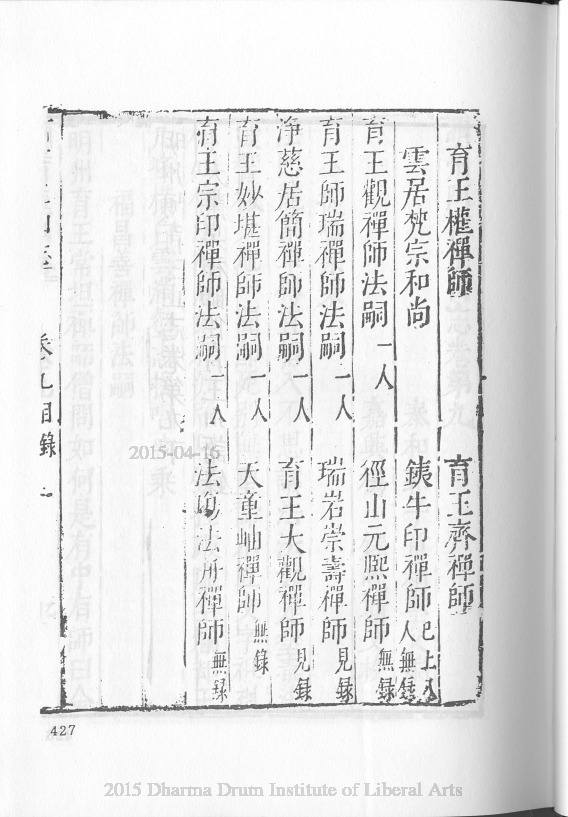 育王權禪師　育王齊禪師
雲居梵宗和尚　銕牛印禪師 已上八人無錄
育王觀禪師法嗣 一人　徑山元熙禪師 無錄
育王師瑞禪師法嗣 一人　瑞岩崇壽禪師 見錄
淨慈居簡禪師法嗣 一人　育王大觀禪師 見錄
育王妙堪禪師法嗣 一人　天童岫禪師 無錄
育王宗印禪師法嗣 一人　法禪師 無錄
卷九目錄
427
2015-04-16
2015 Dharma Drum Institute of Liberal Arts